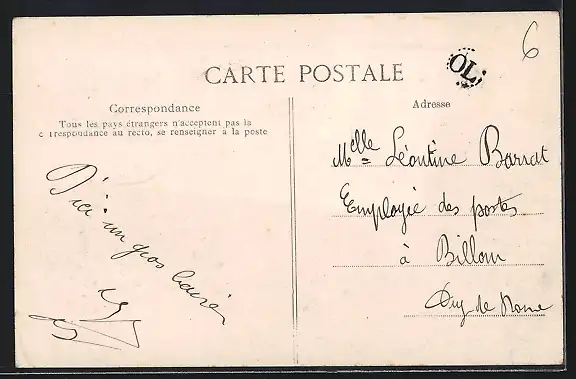 6
CARTE POSTALE
OL
Correspondance
Tous les pays étrangers n'acceptent pas la
c rrespondance au recto, se renseigner à la poste
Adresse
Melle Léontine Barrat
Employée des postes
à Billom
Puy-de-Dome
D'ici un gros baiser